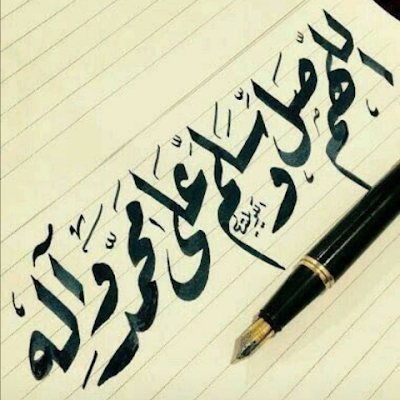 اللهم صل وسلم على محمد وآله